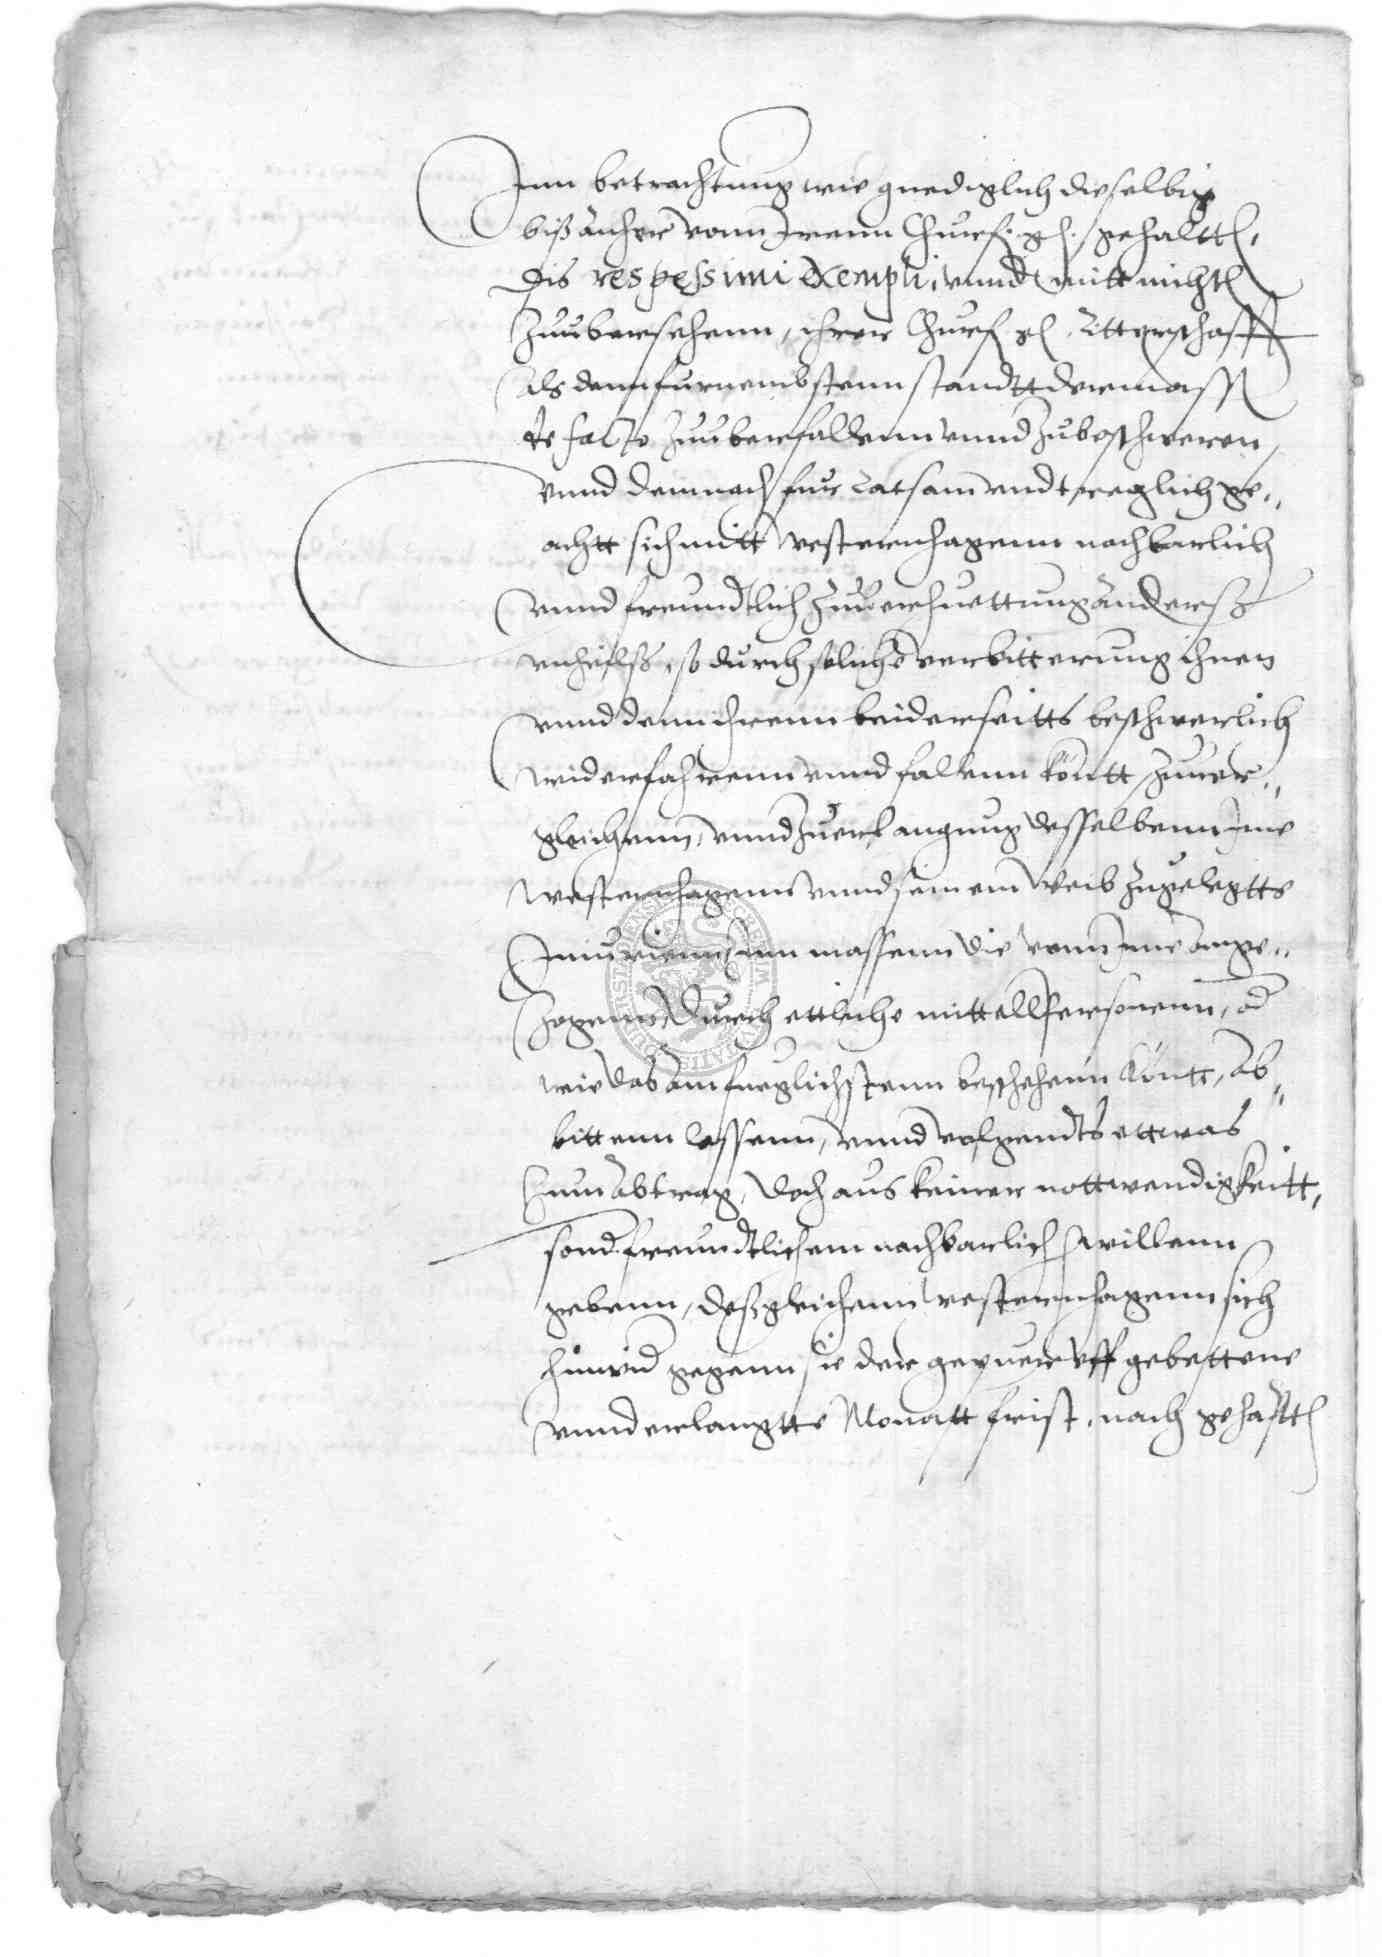 Inn betrachtung wie gnediglich dieselbig
biß anher vonn Irenn Churf. g. gehaltten,
Dis res pessimi exempli, vnnd mitt nichten
zuubersehenn, ihrer Churf. g. Ritterschafft
als denn furnembstenn standtt dermassen
de facto zuuberfallenn vnnd zubeschweren,
vnnd demnach fur ratsam vnd treglich ge„
achtt sich mitt Westernhagenn nachbarlich
vnnd freundtlich zuuerhuettung anderß
vnheilß, so durch solche verbitterung ihnen
vnnd denn ihrenn beiderseitts beschwerlich
widerfahrenn vnnd fallenn köntt zuuer„
gleichenn, vnnd zuerlangung desselbenn Ime
Westernhagenn vnnd seinem Weib zugelegtte
Iniurienn, Inn massenn die vonn Ime ange„
zogenn, durch ettliche mittellpersonenn, od
wie das am fueglichstenn beschehenn köntt, ab„
bittenn lassenn, vnnd volgendts ettwas
zum abtrag, doch aus keiner nottwendigkeitt,
sond freundtlichem nachbarlich willenn
gebenn, deßgleichenn Westernhagenn sich
hinwid gegenn sie der gepuer vff gebettene
vnnd erlangtte Monatt frist, nach gehaltten